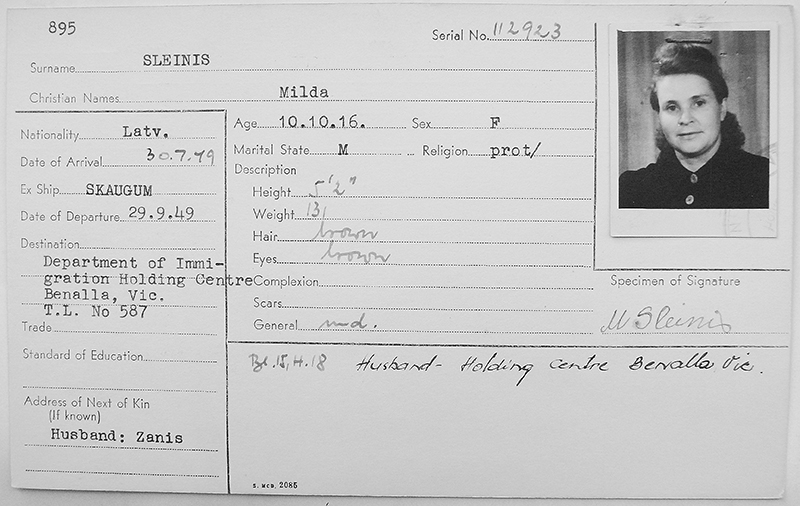 895
Serial No. 112923
Surname SLEINIS
Christian Names Milda
Nationality Latv.
Date of Arrival 30.7.49
Ex Ship SKAUGUM
Date of Departure 29.9.49
Destination
Department of Immi-
gration Holding Centre
Benalla, Vic.
T.L. No 587
Trade
Standard of Education
Address of Next of Kin
(If known)
Husband: Zanis
Age 10.10.16. Sex F
Marital State M Religion prot/
Description
Height 5'2"
Weight 131
Hair brown
Eyes brown
Complexion
Scars
General
Specimen of Signature
M Sleinis
Bl. 15, H. 18 Husband - Holding Centre Benalla Vic.
S. McD. 2085